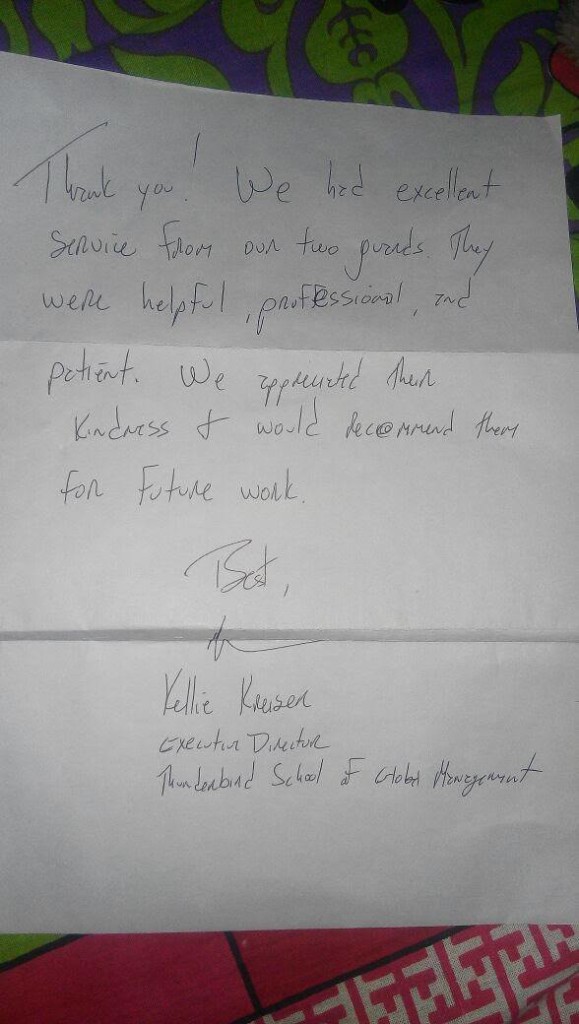 Thank you! We had excellent
service from our two guards. They
were helpful, professional, and
patient. We appreciated their
kindness & would recommend them
for future work.
Best,
Kellie Kreiser
Executive Director
Thunderbird School of Global Management